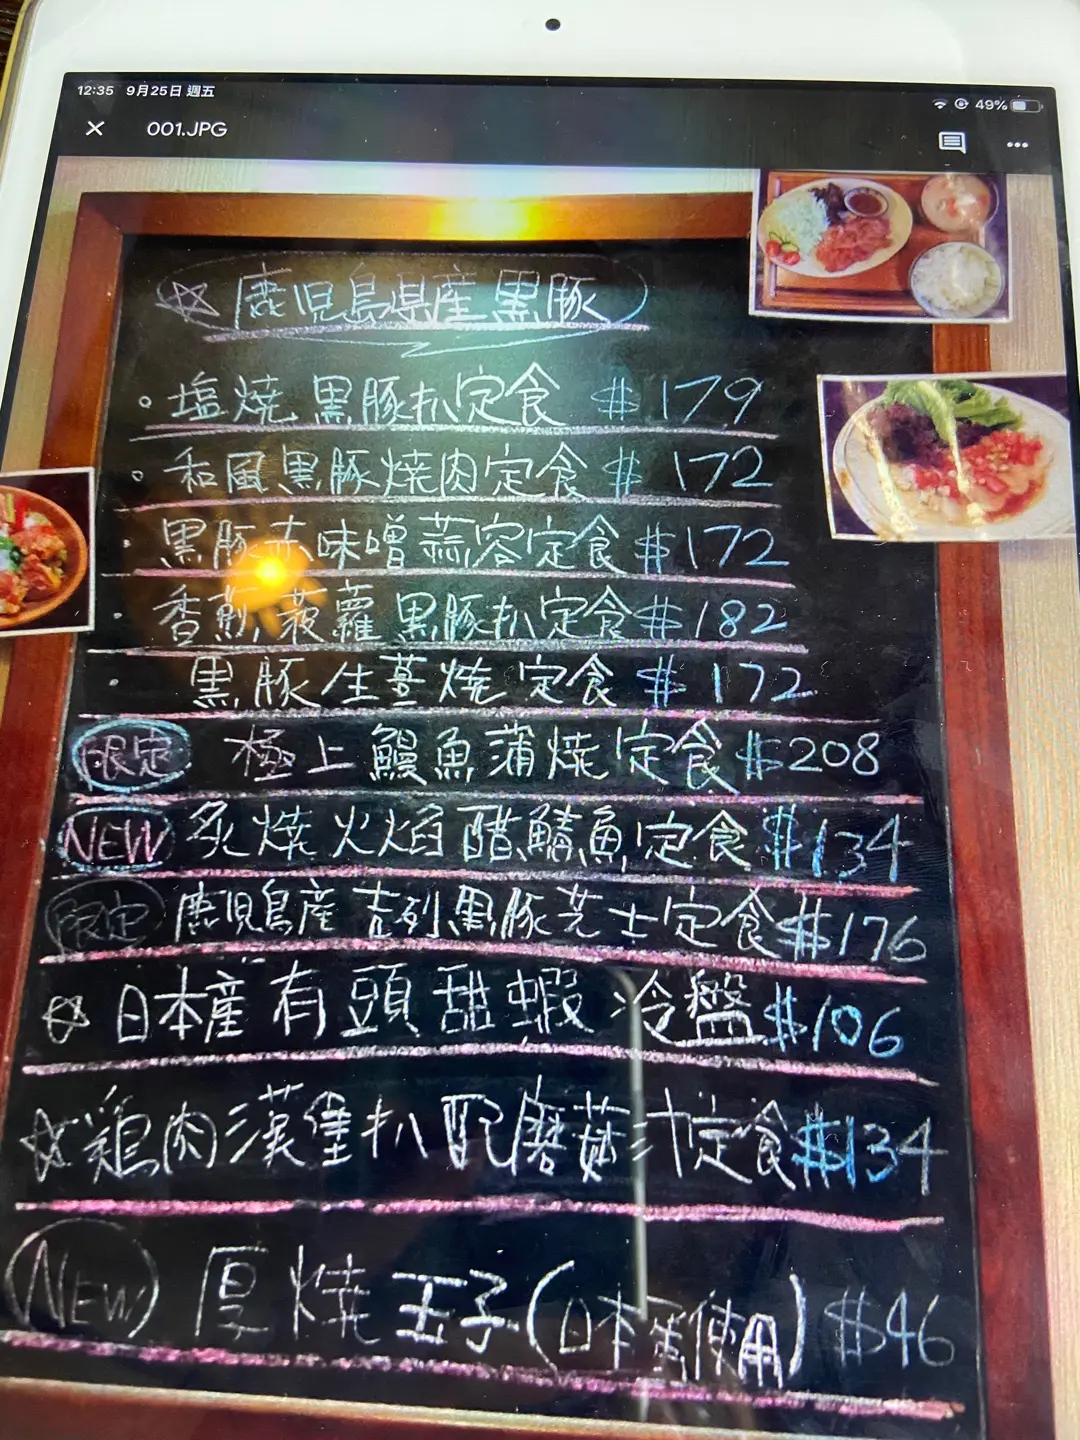 12:35 9月25日 週五
49%
001.JPG
鹿児島県産黒豚
塩焼黒豚扒定食 $179
和風黒豚燒肉定食 $172
黒豚赤味噌蒜容定食 $172
香煎菠蘿黒豚扒定食 $182
黒豚生薑燒定食 $172
限定 極上鰻魚蒲燒定食 $208
NEW 炙燒火焰醋鯖魚定食 $134
限定 鹿児島産吉列黒豚芝士定食 $176
日本産有頭甜蝦冷盤 $106
鶏肉漢堡扒配磨菇汁定食 $134
NEW 厚燒玉子(日本蛋使用) $46